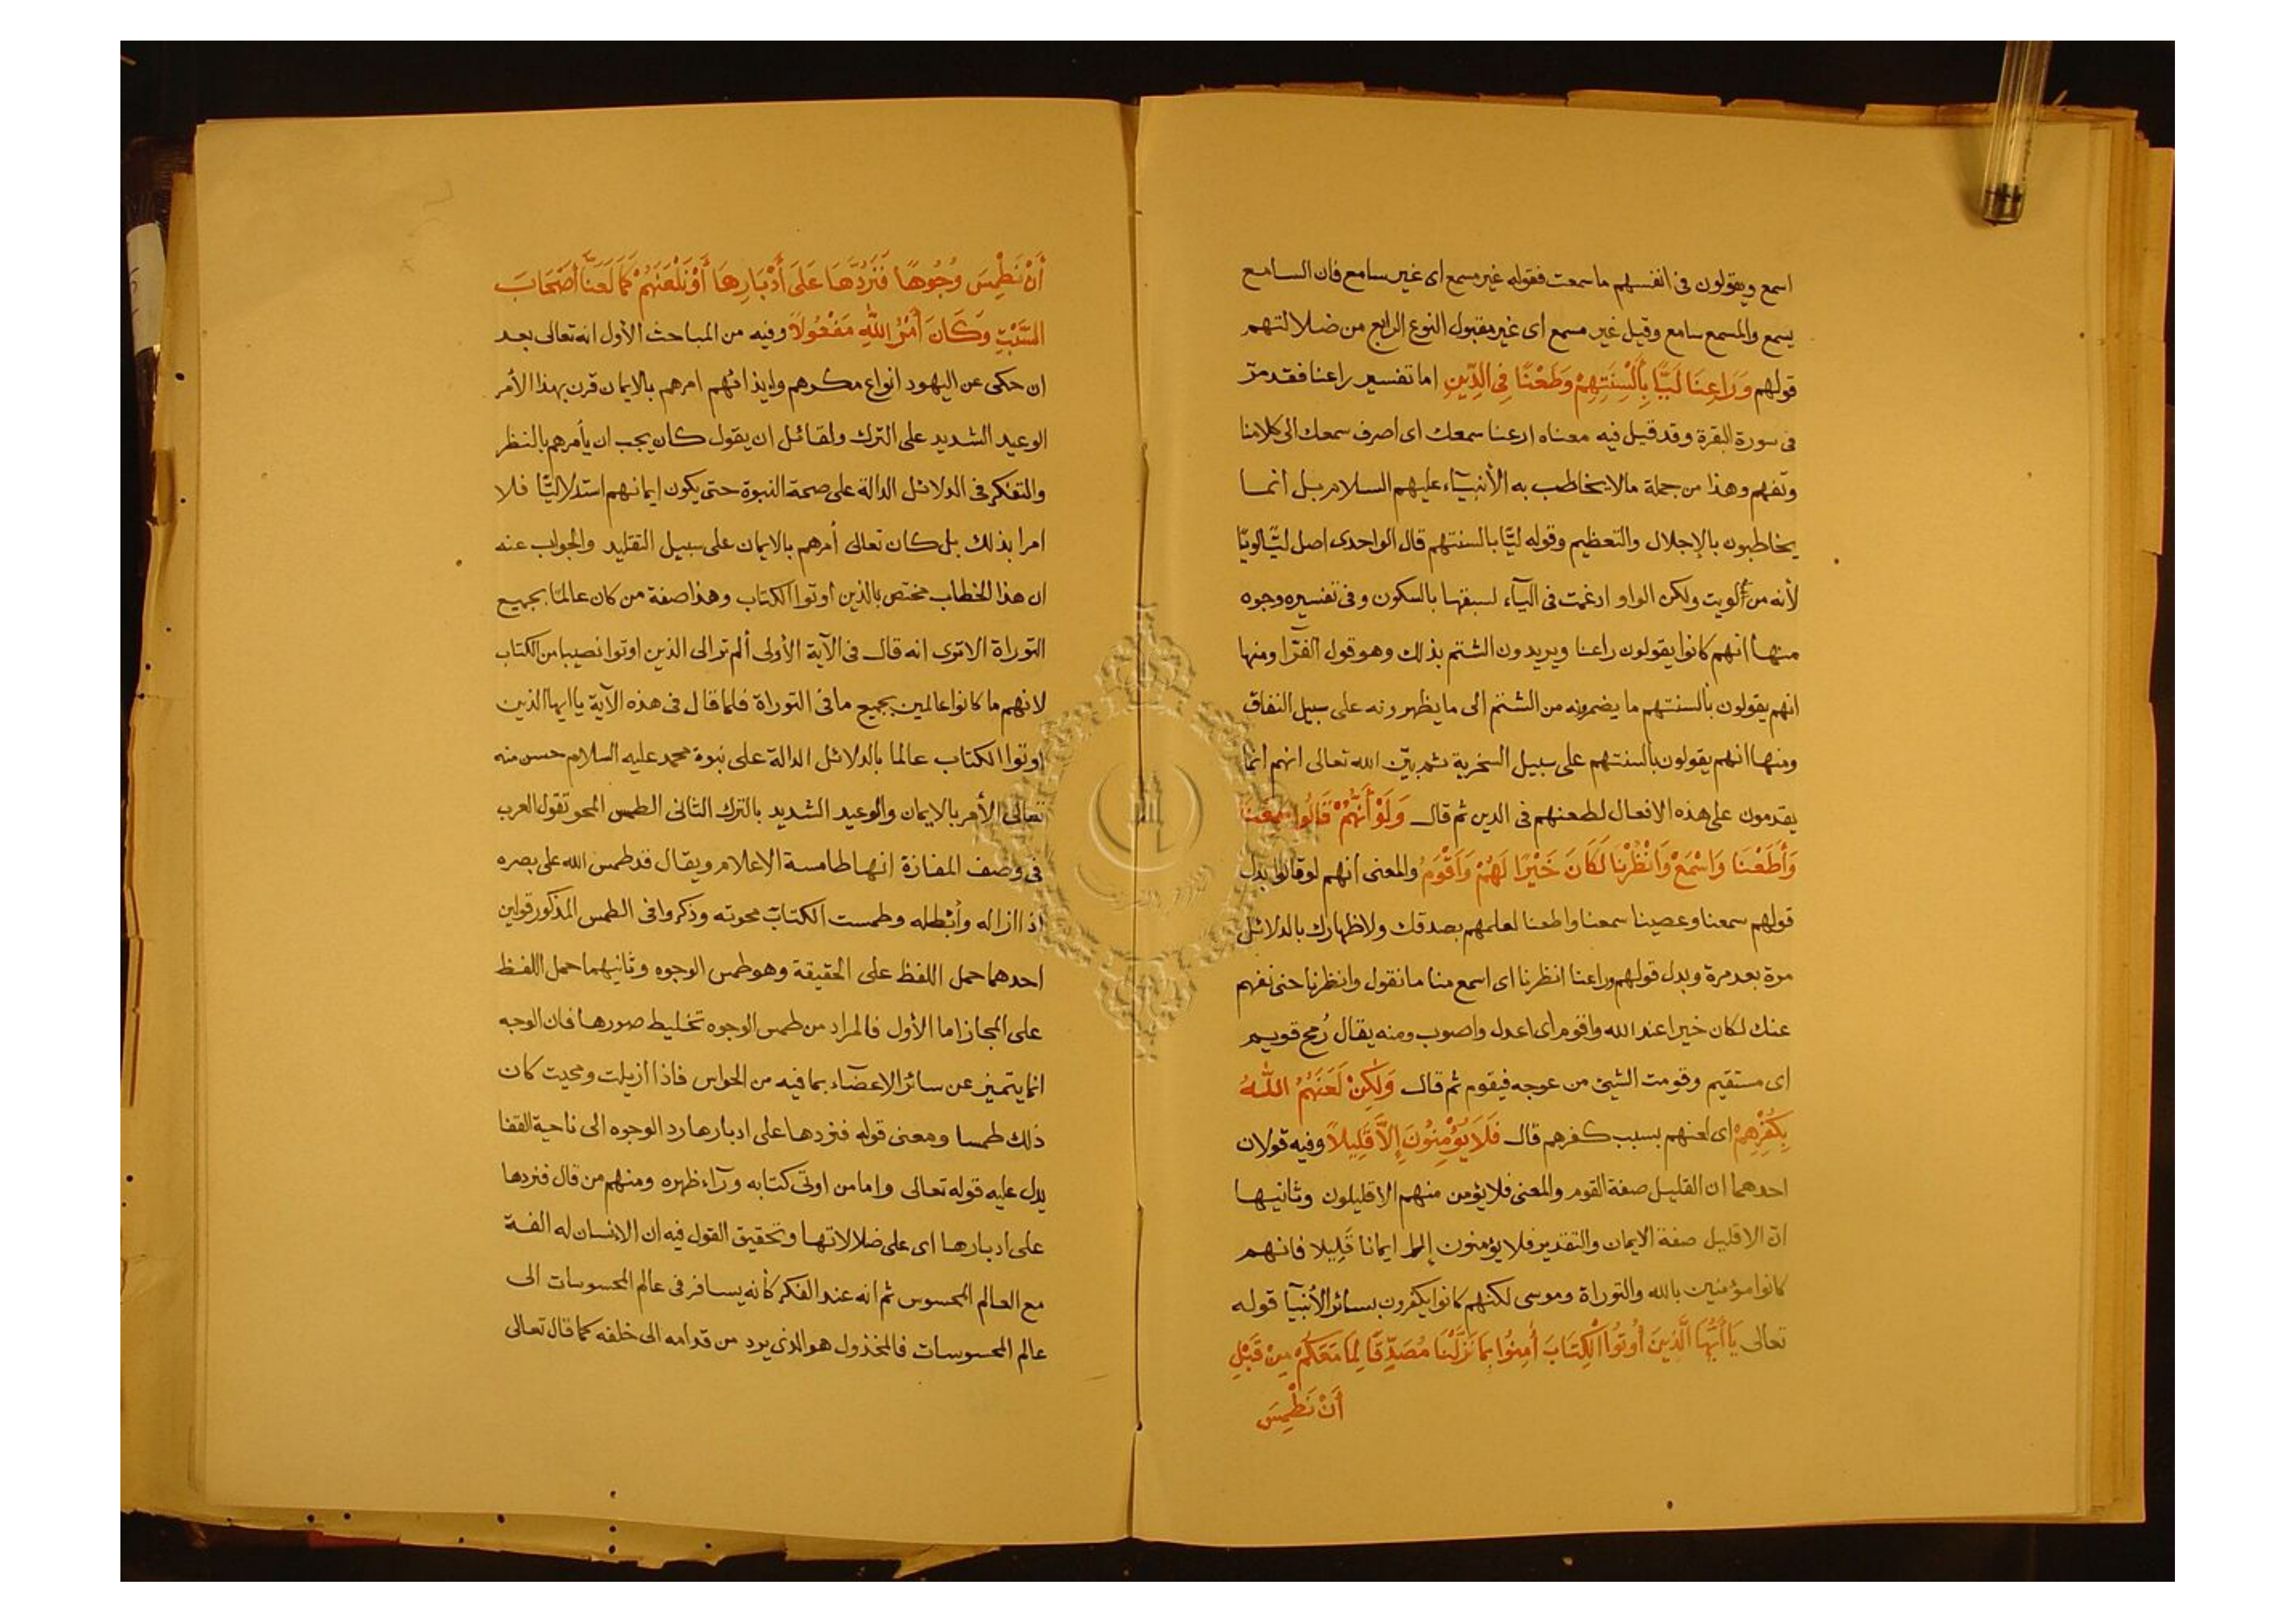 اسمع ويقولون فى انفسهم ما سمعت فقوله غير مسمع اى غير سامع فان السامع
يسمع والمسمع سامع وقيل غير مسمع اى غير مقبول النوع الرابع من ضلالتهم
قولهم وَرَاعِنَا لَيًّا بِأَلْسِنَتِهِمْ وَطَعْنًا فِى الدِّينِ اما تفسير راعنا فقد مرّ
فى سورة البقرة وقد قيل فيه معناه ارعنا سمعك اى اصرف سمعك الى كلامنا
وتفهم وهذا من جملة مالا يخاطب به الأنبيآء عليهم السلام بل انما
يخاطبون بالإجلال والتعظيم وقوله ليّا بالسنتهم قال الواحدى اصل ليّا لويّا
لأنه من لويت ولكن الواو ادغمت فى اليآء لسبقها بالسكون وفى تفسيره وجوه
منها انهم كانوا يقولون راعنا ويريدون الشتم بذلك وهو قول الفرّا ومنها
انهم يقولون بألسنتهم ما يضمرونه من الشتم الى ما يظهرونه على سبيل النفاق
ومنها انهم يقولون بالسنتهم على سبيل السخرية ثم بيّن الله تعالى انهم انما
يقدمون على هذه الافعال لطعنهم فى الدين ثم قال وَلَوْ أَنَّهُمْ قَالُوا سَمِعْنَا
وَأَطَعْنَا وَاسْمَعْ وَانْظُرْنَا لَكَانَ خَيْرًا لَهُمْ وَأَقْوَمُ والمعنى انهم لو قالوا بدل
قولهم سمعنا وعصينا سمعنا واطعنا لعلمهم بصدقك ولاظهارك بالدلائل
مرة بعد مرة وبدل قولهم وراعنا انظرنا اى اسمع منا ما نقول وانظرنا حتى نفهم
عنك لكان خيرا عند الله واقوم اى اعدل واصوب ومنه يقال رُمح قويم
اى مستقيم وقومت الشيئ من عوجه فيقوم ثم قال وَلَكِنْ لَعَنَهُمُ اللَّهُ
بِكُفْرِهِمْ اى لعنهم بسبب كفرهم قال فَلَا يُؤْمِنُونَ إِلَّا قَلِيلًا وفيه قولان
احدهما ان القليل صفة القوم والمعنى فلا يؤمن منهم الا قليلون وثانيها
انّ الا قليل صفة الايمان والتقدير فلا يؤمنون إلا ايمانا قَلِيلا فانهم
كانوا مؤمنين بالله والتوراة وموسى لكنهم كانوا يكفرون بسائر الأنبيآ قوله
تعالى يَا أَيُّهَا الَّذِينَ أُوتُوا الْكِتَابَ أَمِنُوا بِمَا نَزَّلْنَا مُصَدِّقًا لِمَا مَعَكُمْ مِنْ قَبْلِ
أَنْ نَطْمِسَ
أَنْ نَطْمِسَ وُجُوهًا فَنَرُدَّهَا عَلَى أَدْبَارِهَا أَوْ نَلْعَنَهُمْ كَمَا لَعَنَّا أَصْحَابَ
السَّبْتِ وَكَانَ أَمْرُ اللَّهِ مَفْعُولًا وفيه من المباحث الأول انه تعالى بعد
ان حكى عن اليهود انواع مكرهم وايذائهم امرهم بالايمان قرن بهذا الأمر
الوعيد الشديد على الترك ولقائل ان يقول كان يجب ان يأمرهم بالنظر
والتفكر فى الدلائل الدالة على صحة النبوة حتى يكون ايمانهم استدلاليّا فلا
امرا بذلك بل كان تعالى أمرهم بالايمان على سبيل التقليد والجواب عنه
ان هذا الخطاب مختص بالذين أوتوا الكتاب وهذا صفة من كان عالمًا بجميع
التوراة الا ترى انه قال فى الآية الأولى ألم تر الى الذين اوتوا نصيبا من الكتاب
لانهم ما كانوا عالمين بجميع ما فى التوراة فلما قال فى هذه الآية يا ايها الذين
اوتوا الكتاب عالما بالدلائل الدالة على نبوة محمد عليه السلام حسن منه
تعالى الأمر بالايمان والوعيد الشديد بالترك الثانى الطمس المحو تقول العرب
فى وصف المفازة انها طامسة الاعلام ويقال قد طمس الله على بصره
اذا ازاله وأبطله وطمست الكتاب محوته وذكروا فى الطمس المذكور قولين
احدهما حمل اللفظ على الحقيقة وهو طمس الوجوه وثانيهما حمل اللفظ
على المجاز اما الأول فالمراد من طمس الوجوه تخليط صورها فان الوجه
انما يتميز عن سائر الاعضآء بما فيه من الحواس فاذا ازيلت ومحيت كان
ذلك طمسا ومعنى قوله فنردها على ادبارها رد الوجوه الى ناحية القفا
يدل عليه قوله تعالى واما من اوتى كتابه ورآء ظهره ومنهم من قال فنردها
على ادبارها اى على ضلالاتها وتحقيق القول فيه ان الانسان له الفة
مع العالم المحسوس ثم انه عند الفكر كأنه يسافر فى عالم المحسوسات الى
عالم المحسوسات فالمخذول هو الذى يرد من قدامه الى خلفه كما قال تعالى